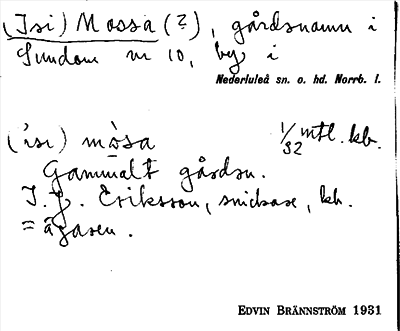 (Isi) Mossa (?), gårdsnamn i
Sundom nr 10, by i
Nederluleå sn. o. hd. Norrb. l.
(ìsi) mòsa 1/32 mtl. kb.
Gammalt gårdsn.
I. J. Eriksson, snickare, kb.
= ägaren.
EDVIN BRÄNNSTRÖM 1931